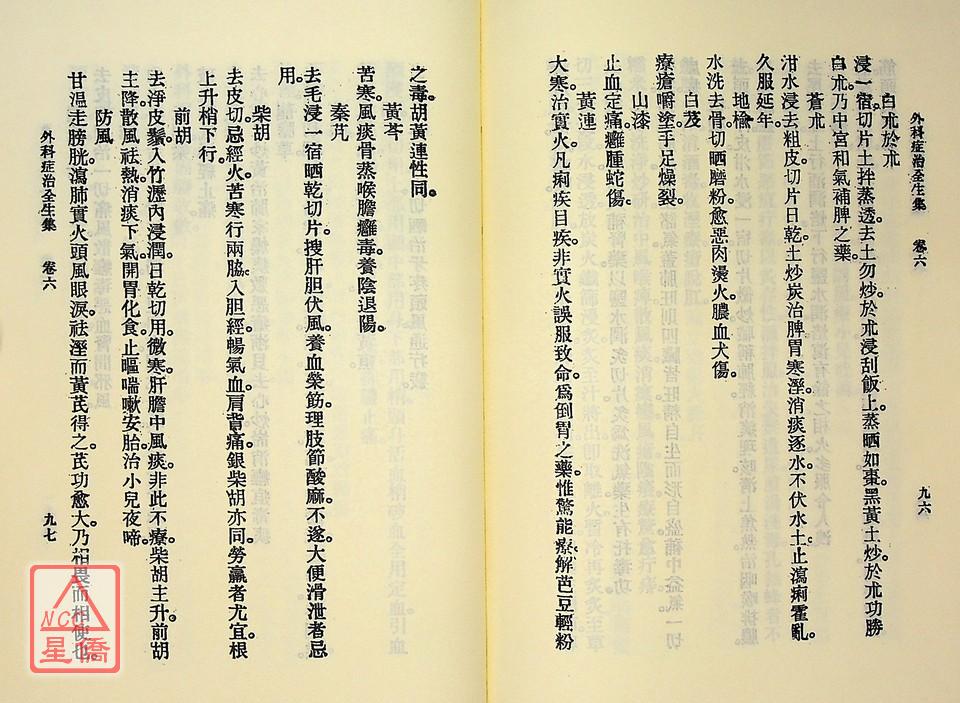 外科症治全生集　卷六　九六
白朮於朮
浸一宿。切片土拌蒸透。去土勿炒。於朮浸刮飯上蒸晒如棗黑。黃土炒。於朮功勝
白朮。乃中宮和氣補脾之藥。
蒼朮
泔水浸去粗皮。切片日乾。土炒炭。治脾胃寒溼。消痰逐水。不伏水土。止瀉痢霍亂。
久服延年。
地榆
水洗去骨切晒磨粉。愈惡肉燙火。膿血犬傷。
白芨
療瘡嚼塗手足燥裂。
山漆
止血定痛。癰腫蛇傷。
黃連
大寒。治實火。凡痢疾目疾。非實火誤服致命。爲倒胃之藥。惟驚能療。解芭豆輕粉
之毒。胡黃連性同。
黃芩
苦寒。風痰骨蒸。喉膽癰毒。養陰退陽。
秦艽
去毛浸一宿。晒乾切片。搜肝胆伏風。養血榮筋。理肢節酸麻。不遂。大便滑泄者忌
用。
柴胡
去皮切。忌經火。苦寒行兩脇。入胆經。暢氣血。肩背痛。銀柴胡亦同。勞羸者尤宜。根
上升。梢下行。
前胡
去淨皮鬚。入竹瀝內浸潤。日乾切用。微寒。肝膽中風痰。非此不療。柴胡主升。前胡
主降。散風祛熱。消痰下氣。開胃化食。止嘔喘嗽。安胎。治小兒夜啼。
防風
甘溫。走膀胱。瀉肺實火。頭風眼淚。祛溼。而黃芪得之。芪功愈大。乃相畏而相使也。
外科症治全生集　卷六　九七
NCC
星僑